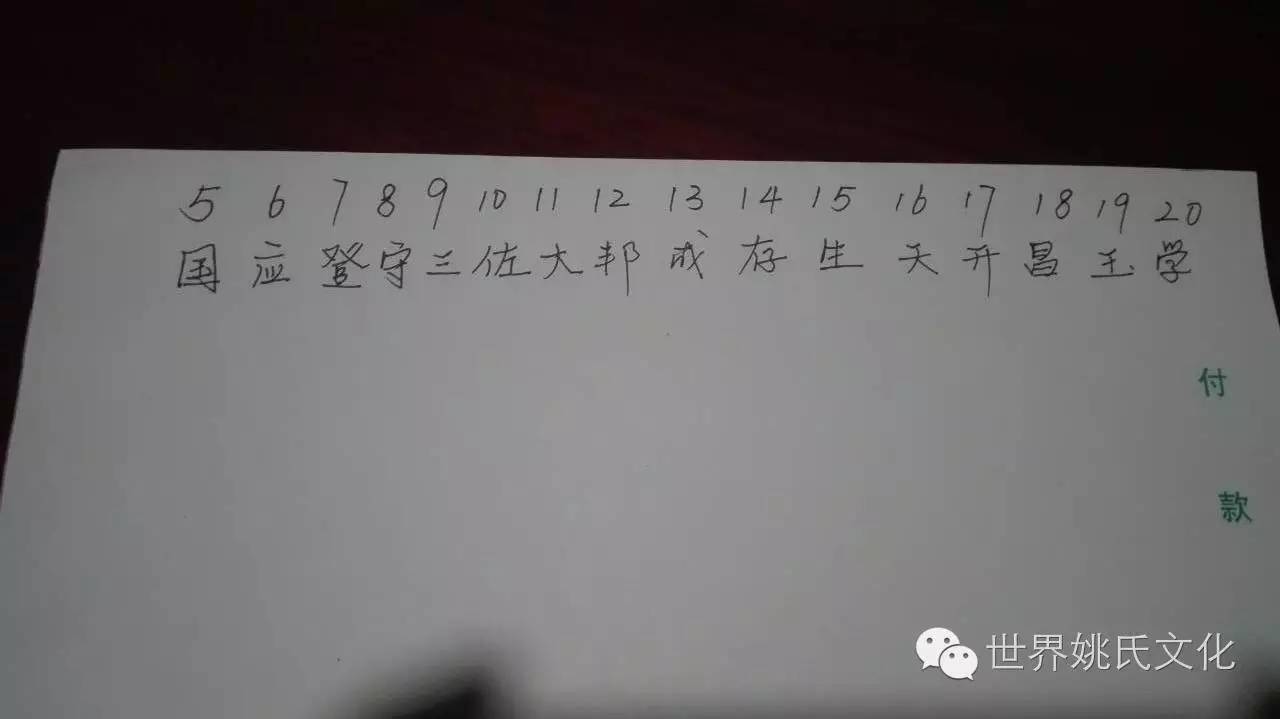 5 6 7 8 9 10 11 12 13 14 15 16 17 18 19 20
国 应 登 守 兰 佐 大 邦 成 存 生 天 开 昌 玉 学
付
款
世界姚氏文化